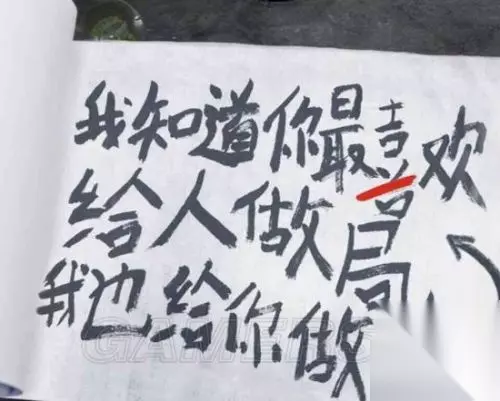 我知道你最喜欢
给人做局
我也给你做